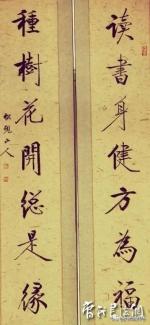 读書身健方為福
種樹花開總是緣